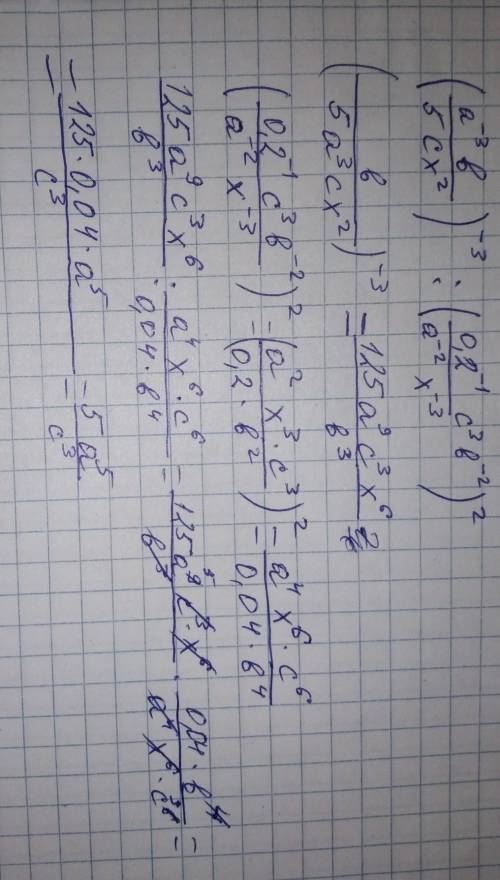 (a⁻³b / 5cx²)⁻³ : (0,2⁻¹ c³ b⁻² / a⁻² x⁻³)²
(b / 5a³cx²)⁻³ = 125a⁹c³x⁶ / b³
(0,2⁻¹ c³ b⁻² / a⁻² x⁻³)² = (a² x³·c³ / 0,2·b²)² = a⁴ x⁶·c⁶ / 0,04·b⁴
125a⁹c³x⁶ / b³ : a⁴x⁶·c⁶ / 0,04·b⁴ = 125a⁹c³·x⁶ / b³ · 0,04·b⁴ / a⁴x⁶·c⁶ =
= 125·0,04·a⁵ / c³ = 5a⁵ / c³